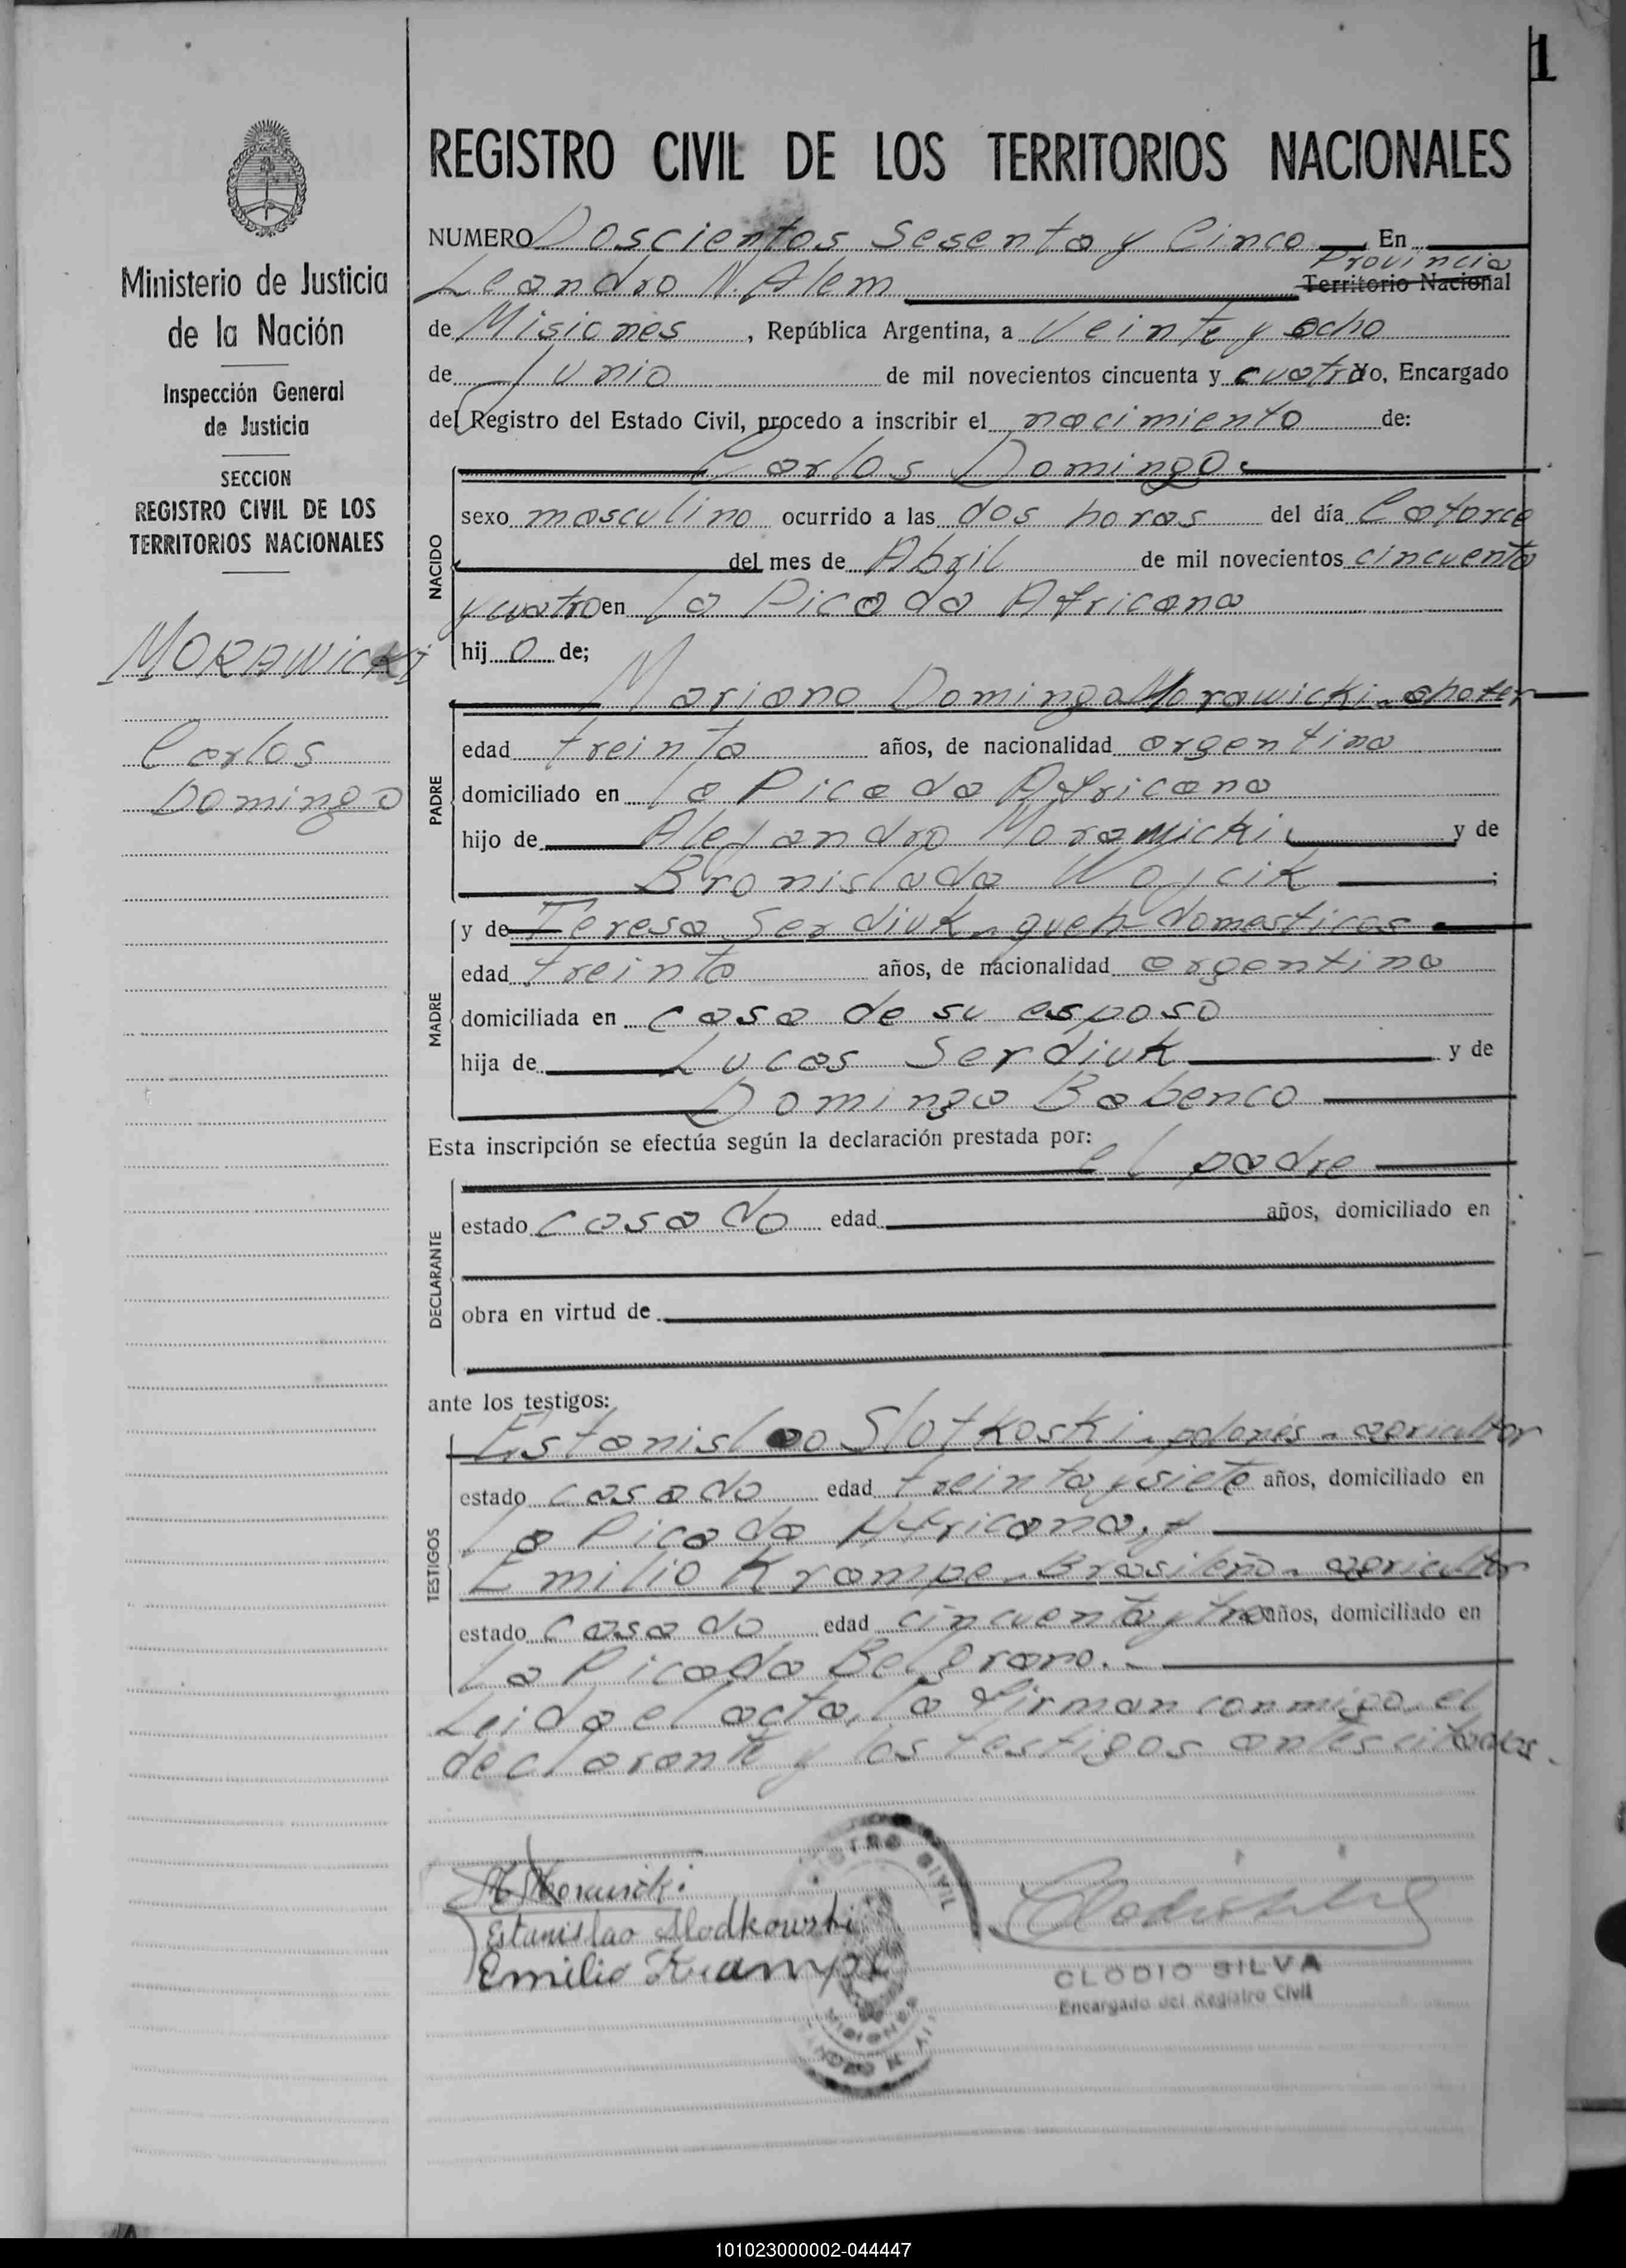 1
Ministerio de Justicia
de la Nación
Inspección General
de Justicia
SECCION
REGISTRO CIVIL DE LOS
TERRITORIOS NACIONALES
MORAWICKI
Carlos
Domingo
REGISTRO CIVIL DE LOS TERRITORIOS NACIONALES
NUMERO Doscientos Sesenta y Cinco En
Provincia
Leandro N. Alem Territorio Nacional
de Misiones, República Argentina, a Veinte y ocho
de Junio de mil novecientos cincuenta y cuatro Yo, Encargado
del Registro del Estado Civil, procedo a inscribir el nacimiento de:
Carlos Domingo
NACIDO
sexo masculino ocurrido a las dos horas del día Catorce
del mes de Abril de mil novecientos cincuenta
y cuatro en la Picada Africana
hijo de;
PADRE
Mariano Domingo Morawicki - chofer
edad treinta años, de nacionalidad argentina
domiciliado en la Picada Africana
hijo de Alejandro Morawicki y de
Bronislada Wojcik ;
MADRE
y de Teresa Serdiuk - queh domesticos
edad treinta años, de nacionalidad argentina
domiciliada en casa de su esposo
hija de Lucas Serdiuk y de
Dominga Babenco
Esta inscripción se efectúa según la declaración prestada por:
el padre
DECLARANTE
estado casado edad años, domiciliado en
obra en virtud de
ante los testigos:
TESTIGOS
Estanislao Slotkoski - polonés - agricultor
estado casado edad treinta y siete años, domiciliado en
La Picada Africana, y
Emilio Krampe - Brasileño - agricultor
estado casado edad cincuenta y tres años, domiciliado en
La Picada Belgrano. -
Leida el acta, la firman conmigo, el
declarante y los testigos antes citados.
M Morawicki
Estanislao Slodkowski
Emilio Krampe
CLODIO SILVA
Encargado del Registro Civil
REGISTRO CIVIL
MISIONES
101023000002-044447